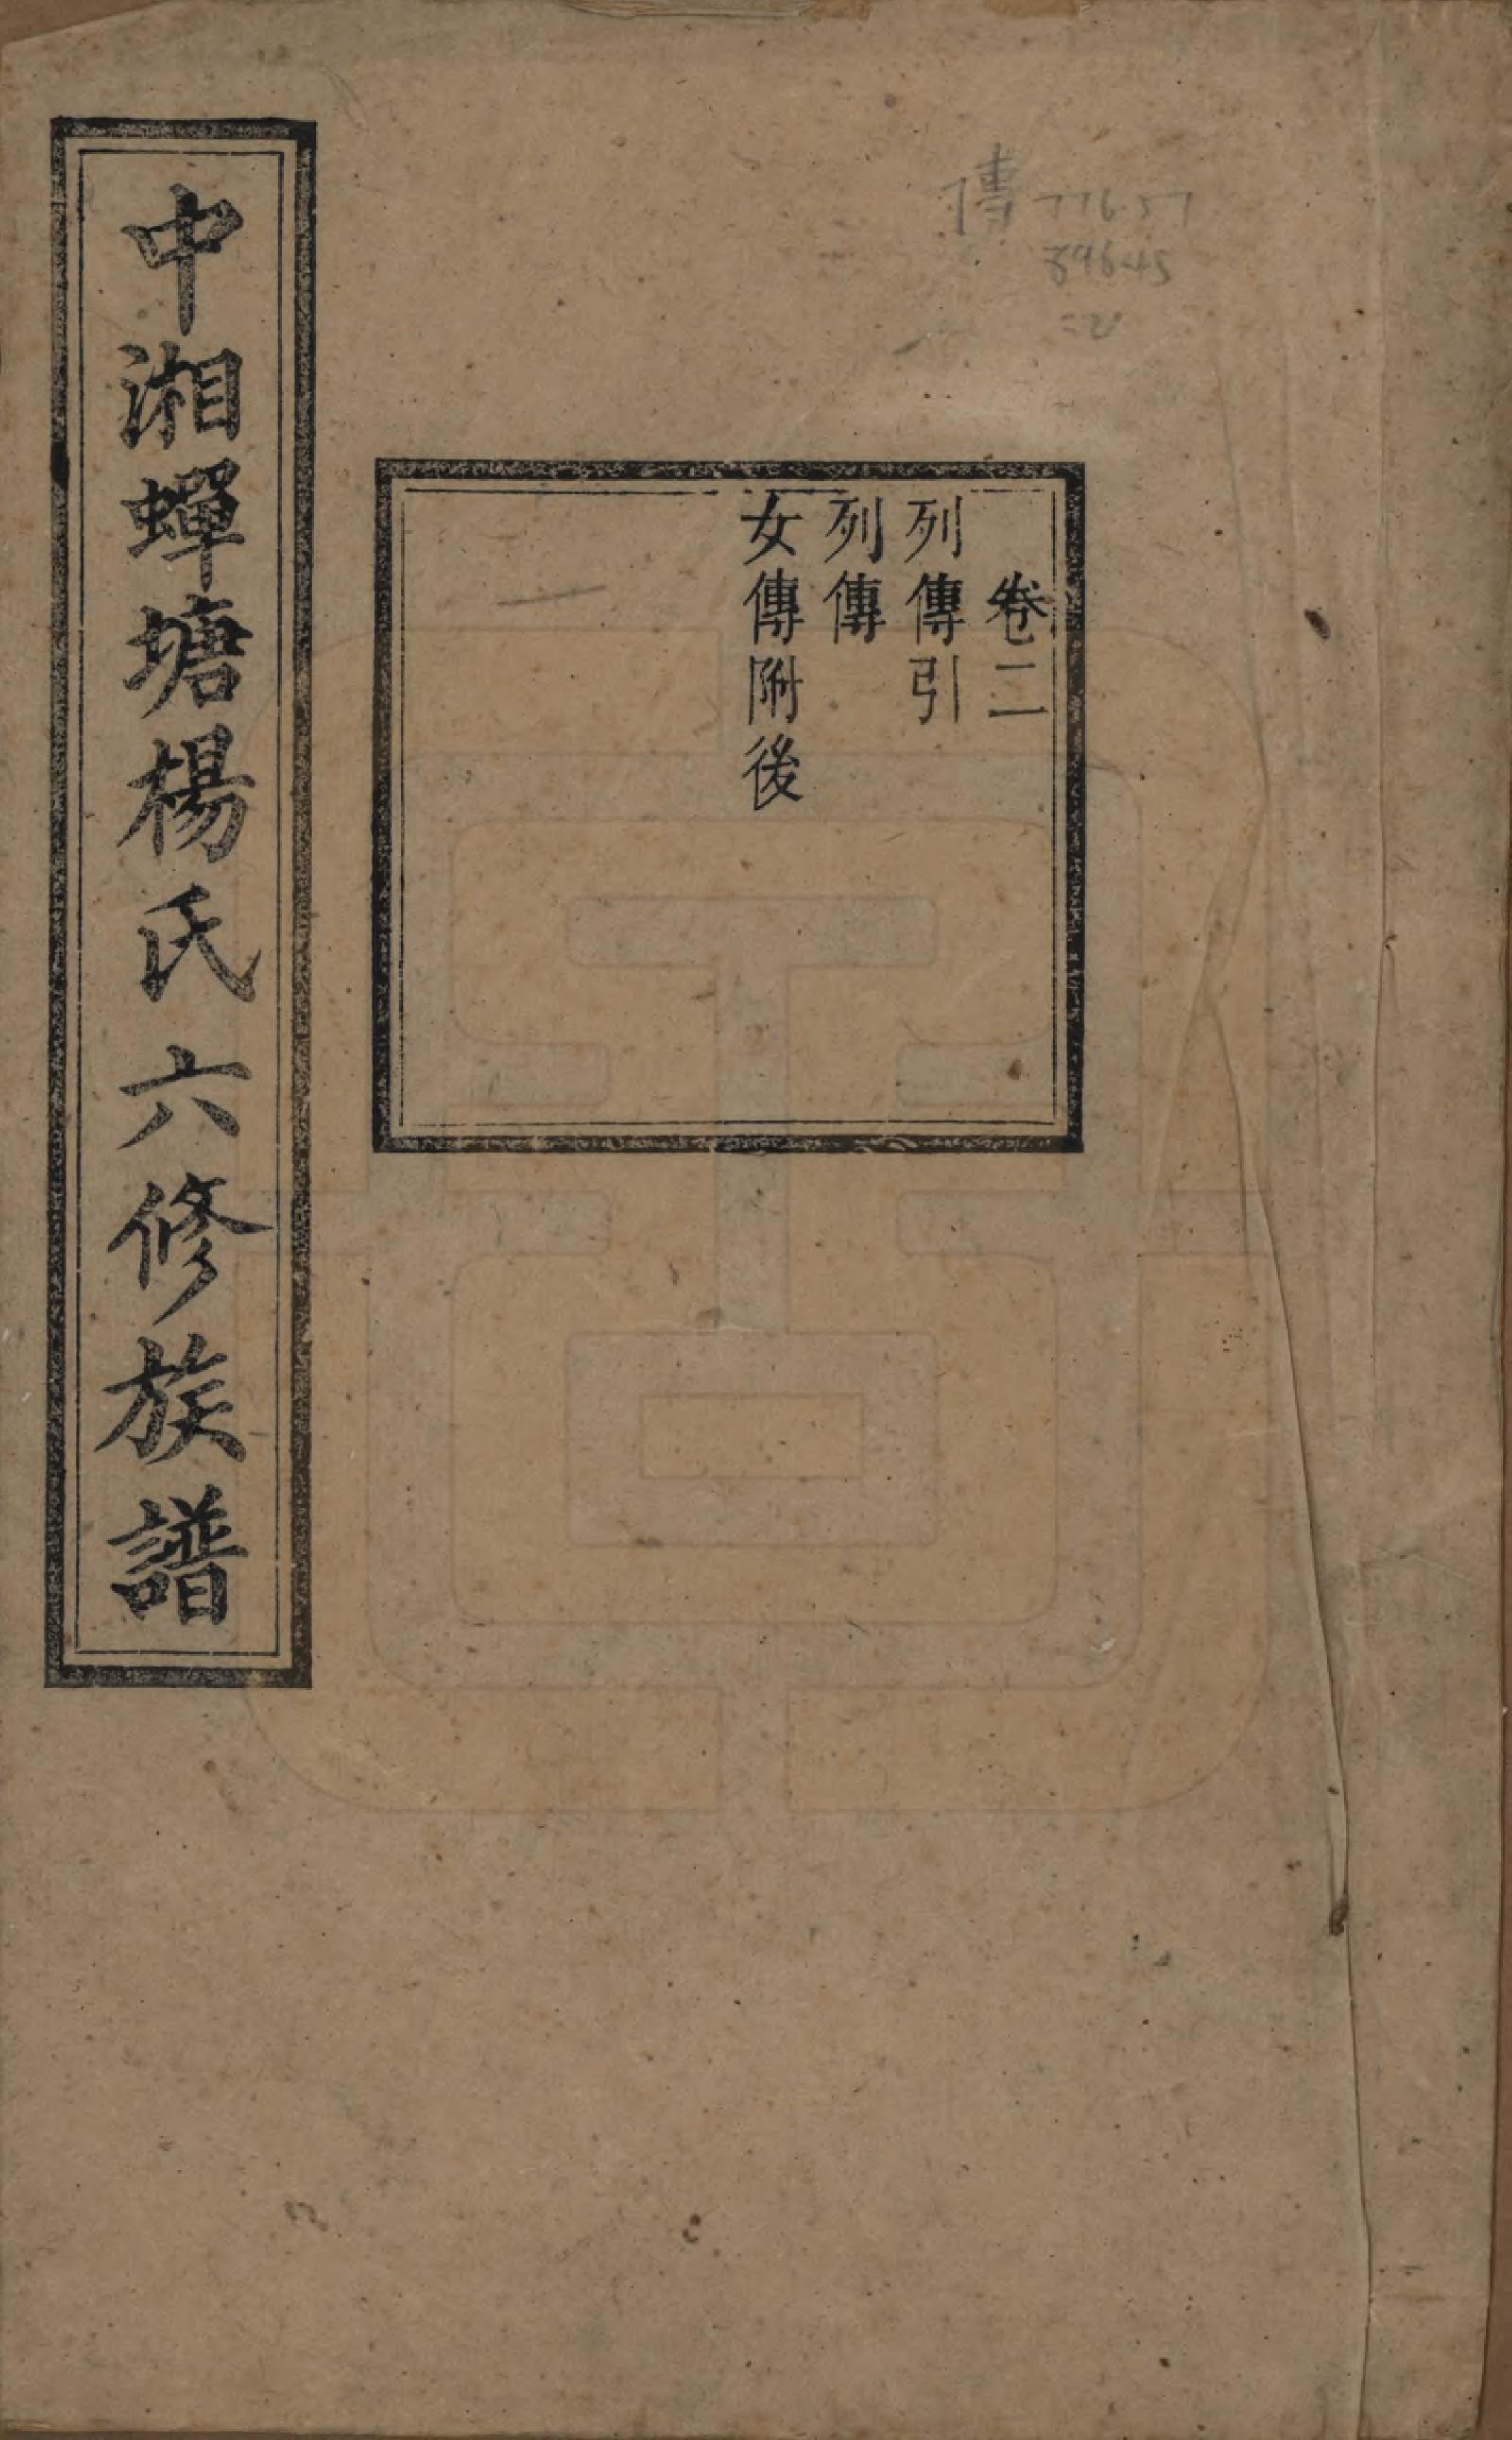 傳 776.57
896.45
:2
卷二
列傳引
列傳
女傳附後
中湘蟬塘楊氏六修族譜